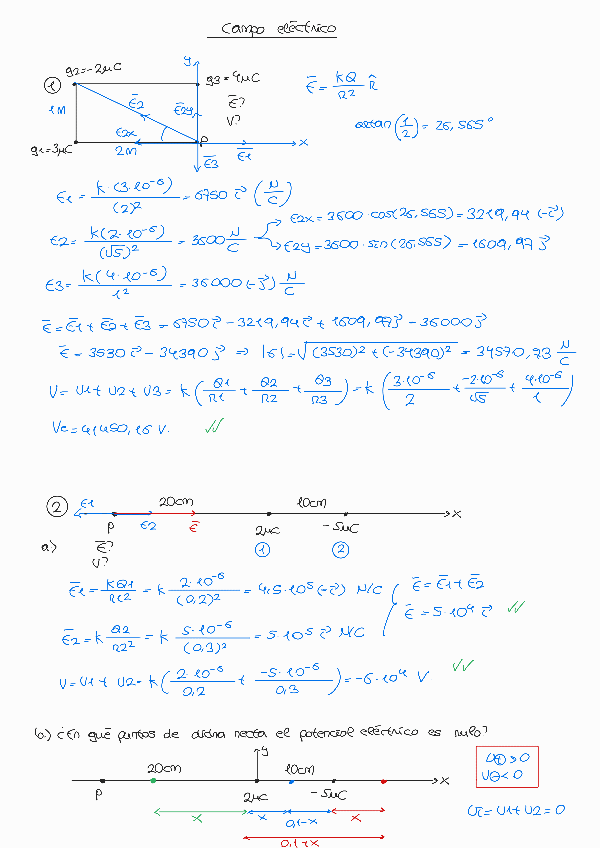 Campo eléctrico
① q2=-2μC
q3=4μC
y
Ē = KQ/R² R̂
1M
Ē2
E2y
Ē?
V?
artan(1/2) = 26,565°
E2x
P
x
q1=3μC
2M
Ē3
Ē1
E1 = K·(3·10⁻⁶)/(2)² = 6750 i⃗ (N/C)
E2 = K(2·10⁻⁶)/(√5)² = 3600 N/C
E2x = 3600·cos(26,565) = 3219,94 (-i⃗)
E2y = 3600·sen(26,565) = 1609,97 j⃗
E3 = K(4·10⁻⁶)/1² = 36000 (-j⃗) N/C
Ē = Ē1 + Ē2 + Ē3 = 6750 i⃗ - 3219,94 i⃗ + 1609,97 j⃗ - 36000 j⃗
Ē = 3530 i⃗ - 34390 j⃗ ⇒ |E| = √(3530)² + (-34390)² = 34570,73 N/C
V = V1 + V2 + V3 = K (Q1/R1 + Q2/R2 + Q3/R3) = K (3·10⁻⁶/2 + -2·10⁻⁶/√5 + 4·10⁻⁶/1)
Vc = 41450,16 V.
② E1
20cm
10cm
x
P
E2
Ē
2μC
-5μC
a) Ē?
V?
①
②
Ē1 = KQ1/R1² = K 2·10⁻⁶/(0,2)² = 4,5·10⁵ (-i⃗) N/C
Ē = Ē1 + Ē2
Ē = 5·10⁴ i⃗
Ē2 = K Q2/R2² = K 5·10⁻⁶/(0,3)² = 5·10⁵ i⃗ N/C
V = V1 + V2 = K (2·10⁻⁶/0,2 + -5·10⁻⁶/0,3) = -6·10⁴ V
b) ¿En qué puntos de dicha recta el potencial eléctrico es nulo?
y
20cm
10cm
x
P
2μC
-5μC
V⊕ > 0
V⊖ < 0
x
x
0,1-x
x
0,1+x
Vt = V1 + V2 = 0